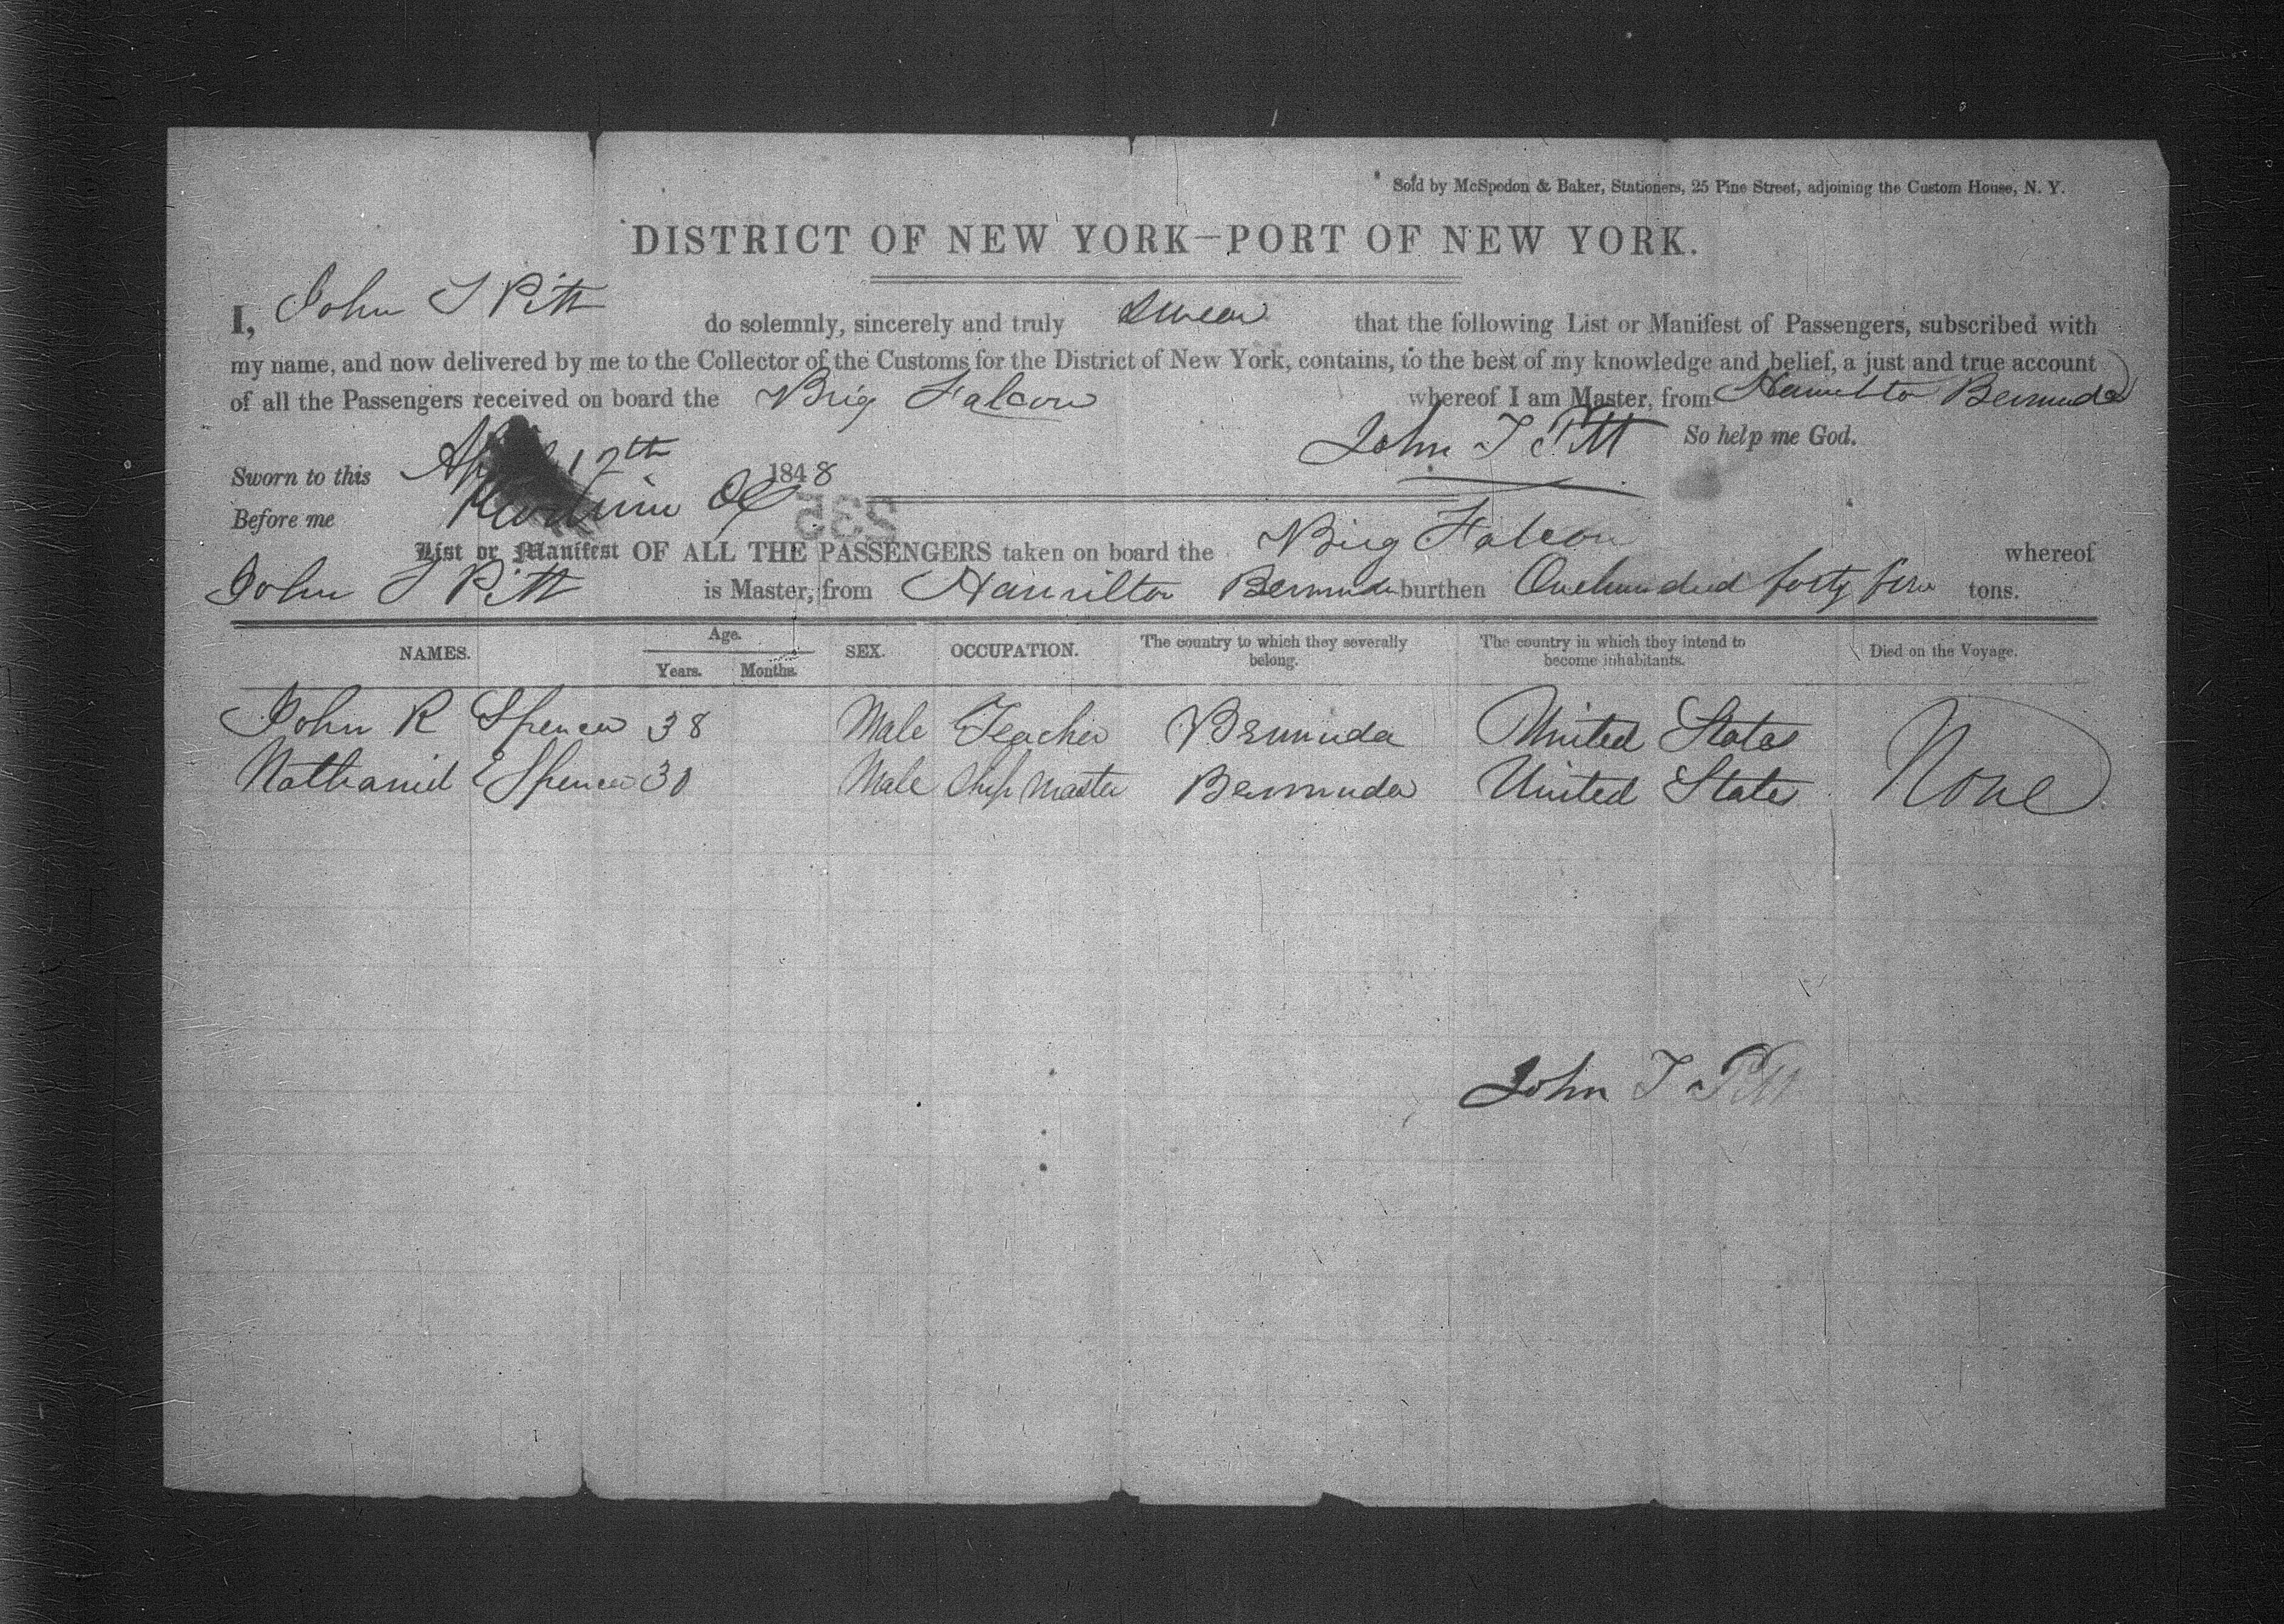 Sold by McSpedon & Baker, Stationers, 25 Pine Street, adjoining the Custom House, N. Y.
DISTRICT OF NEW YORK—PORT OF NEW YORK.
I, John T Pitt do solemnly, sincerely and truly swear that the following List or Manifest of Passengers, subscribed with
my name, and now delivered by me to the Collector of the Customs for the District of New York, contains, to the best of my knowledge and belief, a just and true account
of all the Passengers received on board the Brig Falcon whereof I am Master, from Hamilton Bermuda
John T Pitt So help me God.
Sworn to this 17th 1848
Before me
235
List or Manifest OF ALL THE PASSENGERS taken on board the Brig Falcon whereof
John T Pitt is Master, from Hamilton Bermuda burthen One hundred forty tons.
NAMES. Age. Years. Months. SEX. OCCUPATION. The country to which they severally belong. The country in which they intend to become inhabitants. Died on the Voyage.
John R Spencer 38 Male Teacher Bermuda United States None
Nathaniel E Spencer 30 Male Ship Master Bermuda United States
John T Pitt